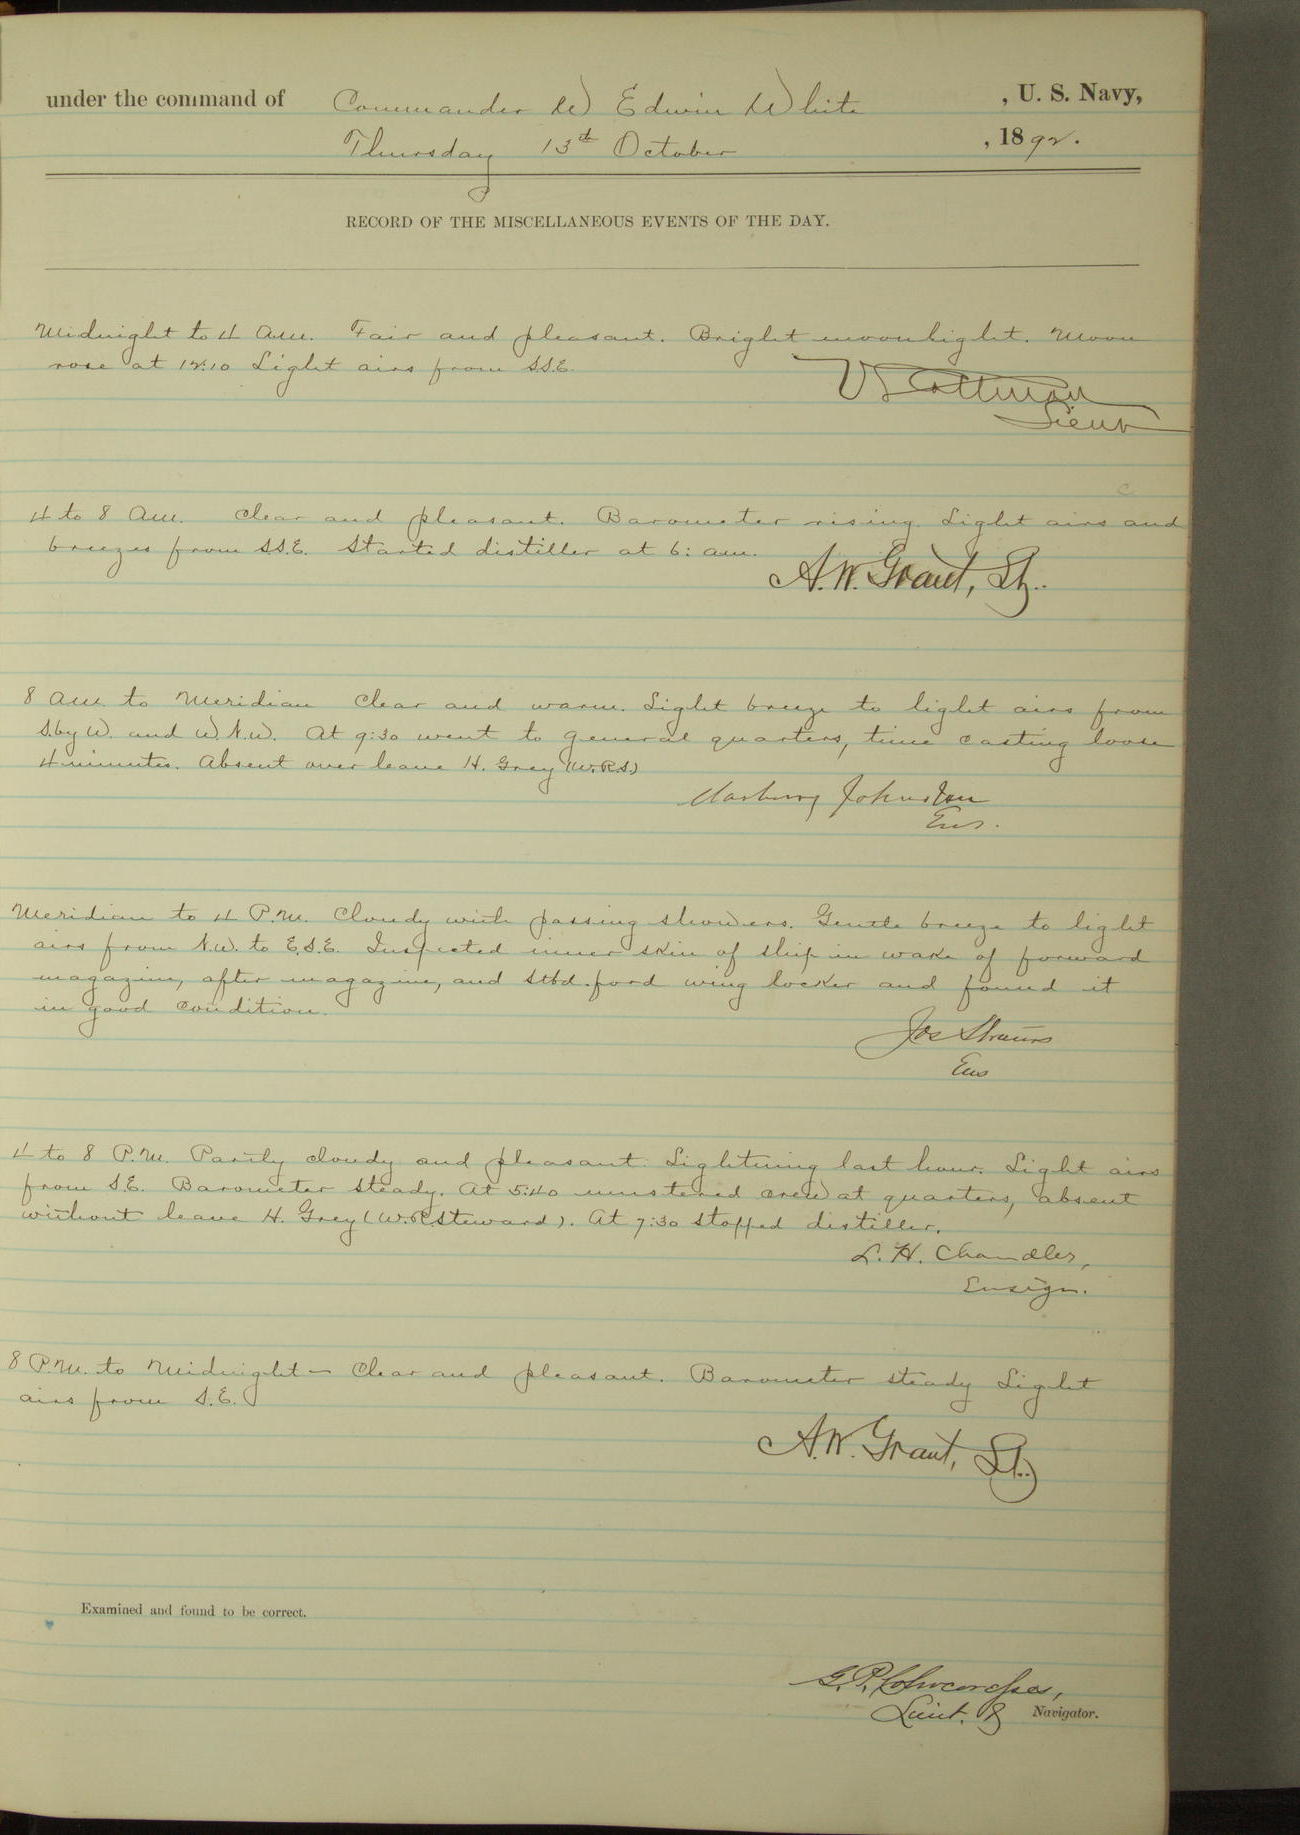 under the command of Commander W Edwin White, U. S. Navy,
Thursday 13th October, 1892.
RECORD OF THE MISCELLANEOUS EVENTS OF THE DAY.
Midnight to 4 a.m. Fair and pleasant. Bright moonlight. Moon
rose at 12:10 Light airs from S.S.E.
V S Cottman
Lieut
4 to 8 a.m. Clear and pleasant. Barometer rising. Light airs and
breezes from S.S.E. Started distiller at 6: a.m.
A. W. Grant, Lt.
8 a.m. to Meridian Clear and warm. Light breeze to light airs from
S. by W. and W.N.W. At 9:30 went to general quarters, time casting loose
4 minutes. Absent over leave H. Grey (W.R.S.)
Marbury Johnston
Ens.
Meridian to 4 P.M. Cloudy with passing showers. Gentle breeze to light
airs from N.W. to E.S.E. Inspected inner skin of ship in wake of forward
magazine, after magazine, and stbd. ford wing locker and found it
in good condition.
Jos Strauss
Ens
4 to 8 P.M. Partly cloudy and pleasant. Lightning last hour. Light airs
from S.E. Barometer steady. At 5:40 mustered crew at quarters, absent
without leave H. Grey (W.R. steward). At 7:30 stopped distiller.
L. H. Chandler,
Ensign.
8 P.M. to Midnight — Clear and pleasant. Barometer steady Light
airs from S.E.
A. W. Grant, Lt.
Examined and found to be correct.
G. P. Colvocoresses,
Lieut. & Navigator.